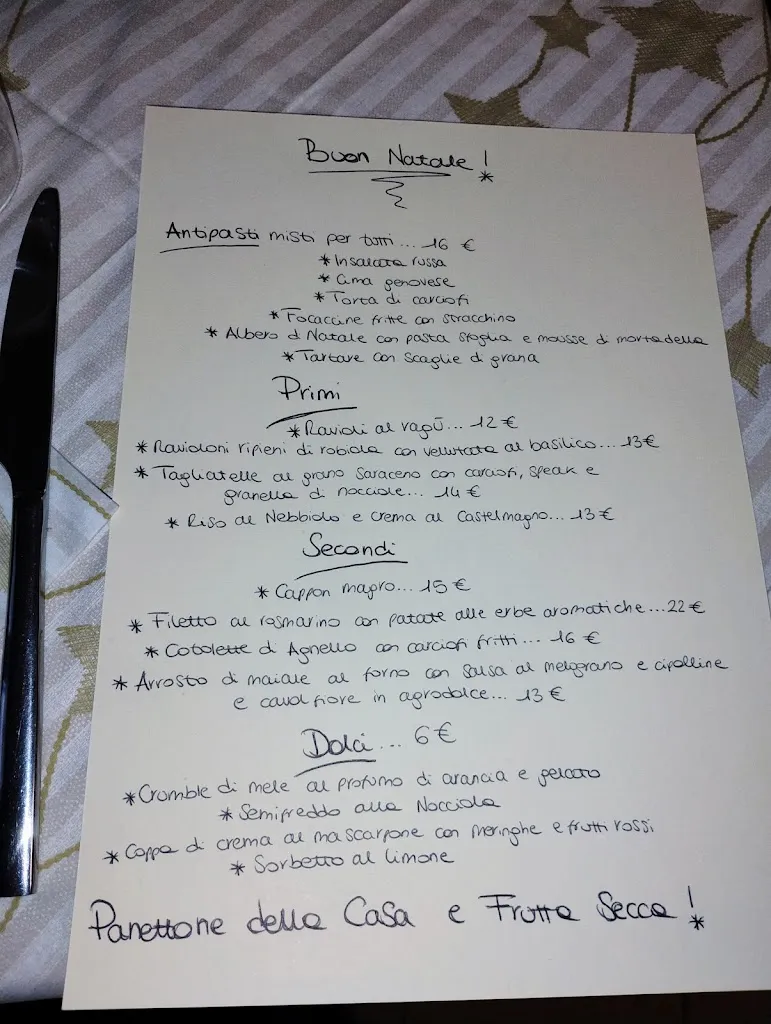 Buon Natale!
Antipasti misti per tutti... 16 €
* Insalata russa
* Cima genovese
* Torta di carciofi
* Focaccine fritte con stracchino
* Albero d Natale con pasta sfoglia e mousse di mortadella
* Tartare con scaglie di grana
Primi
* Ravioli al ragù... 12 €
* Ravioloni ripieni di robiola con vellutata al basilico... 13 €
* Tagliatelle al grano saraceno con carciofi, speak e
granella di nocciole... 14 €
* Riso al Nebbiolo e crema al Castelmagno... 13 €
Secondi
* Cappon magro... 15 €
* Filetto al rosmarino con patate alle erbe aromatiche... 22 €
* Cotolette di Agnello con carciofi fritti... 16 €
* Arrosto di maiale al forno con salsa al melograno e cipolline
e cavolfiore in agrodolce... 13 €
Dolci... 6 €
* Crumble di mele al profumo di arancia e gelato
* Semifreddo alla Nocciola
* Coppa di crema al mascarpone con meringhe e frutti rossi
* Sorbetto al limone
Panettone della Casa e Frutta Secca!